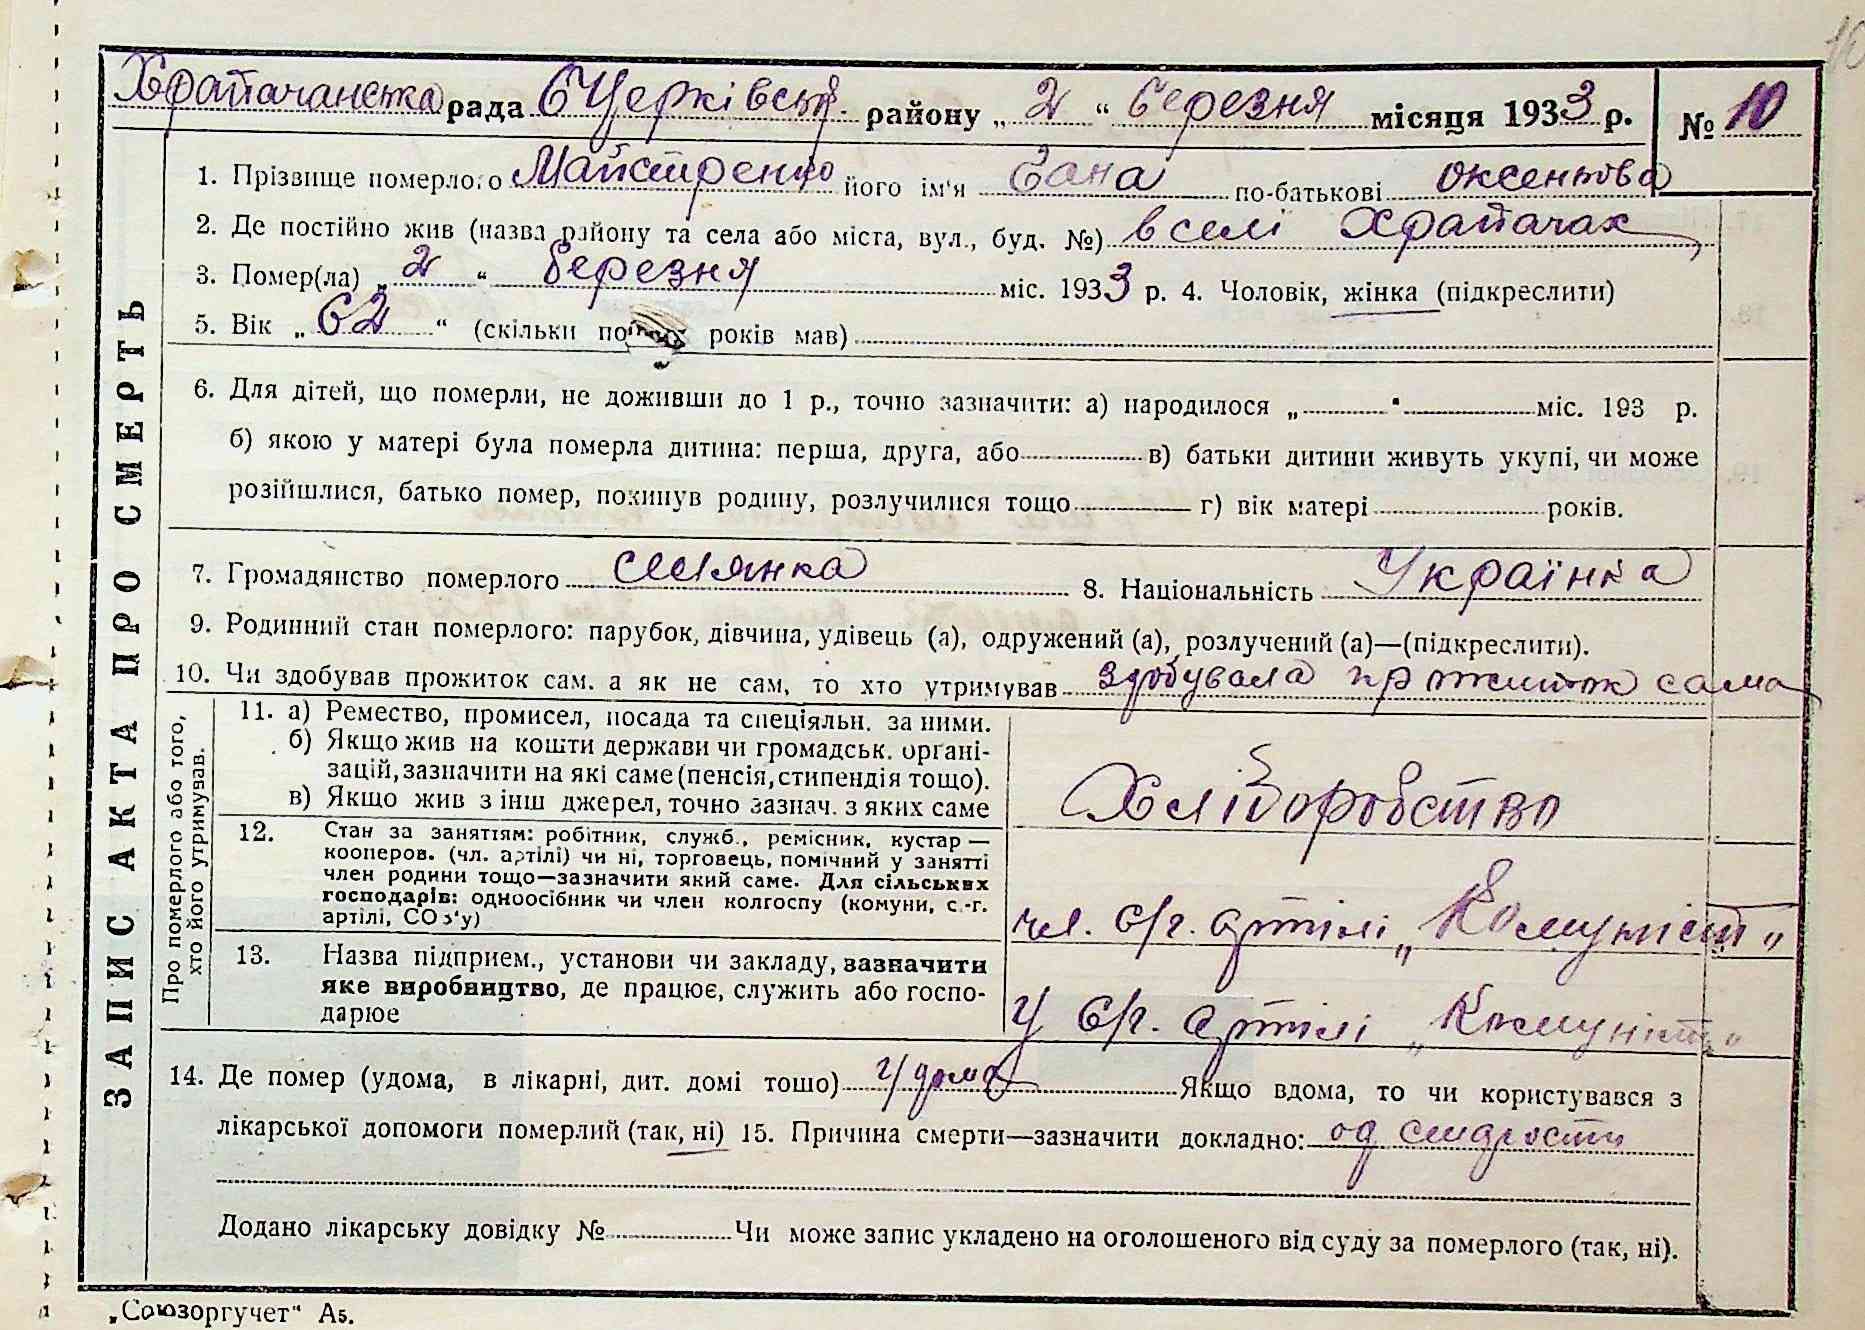 Храпачанська рада БЦерківськ. району „ 2 “ березня місяця 1933 р. № 10
1. Прізвище померлого Майстренко його ім'я Гана по-батькові оксентова
2. Де постійно жив (назва району та села або міста, вул., буд. №) в селі Храпачах
3. Помер(ла) „ 2 “ березня міс. 1933 р. 4. Чоловік, жінка (підкреслити)
5. Вік „ 62 “ (скільки років мав)
6. Для дітей, що померли, не доживши до 1 р., точно зазначити: а) народилося „ “ міс. 193 р.
б) якою у матері була померла дитина: перша, друга, або в) батьки дитини живуть укупі, чи може
розійшлися, батько помер, покинув родину, розлучилися тощо г) вік матері років.
7. Громадянство померлого 8. Національність Українка
9. Родинний стан померлого: парубок, дівчина, удівець (а), одружений (а), розлучений (а)—(підкреслити).
10. Чи здобував прожиток сам, а як не сам, то хто утримував здобувала прожиток сама
Про померлого або того, хто його утримував.
11. а) Ремество, промисел, посада та спеціяльн. за ними.
б) Якщо жив на кошти держави чи громадськ. органі-
зацій, зазначити на які саме (пенсія, стипендія тощо).
в) Якщо жив з інш джерел, точно зазнач. з яких саме
Хліборобство
12. Стан за заняттям: робітник, служб., ремісник, кустар —
кооперов. (чл. артілі) чи ні, торговець, помічний у занятті
член родини тощо—зазначити який саме. Для сільських
господарів: одноосібник чи член колгоспу (комуни, с.-г.
артілі, СОз'у)
чл. с/г. артілі „Комуніст“
13. Назва підприєм., установи чи закладу, зазначити
яке виробництво, де працює, служить або госпо-
дарює
У с/г. артілі „Комуніст“
14. Де помер (удома, в лікарні, дит. домі тощо) Удома Якщо вдома, то чи користувався з
лікарської допомоги померлий (так, ні) 15. Причина смерти—зазначити докладно: од
Додано лікарську довідку № Чи може запис укладено на оголошеного від суду за померлого (так, ні).
ЗАПИС АКТА ПРО СМЕРТЬ
„Союзоргучет“ А5.